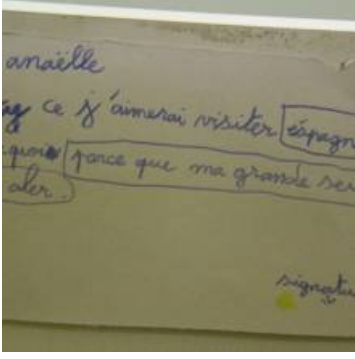 anaëlle
ce j'aimerai visiter éspagn
quoi parce que ma grande seu
aler.
signatu